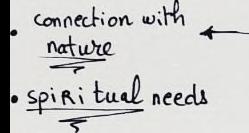 • connection with
nature
• spiRitual needs